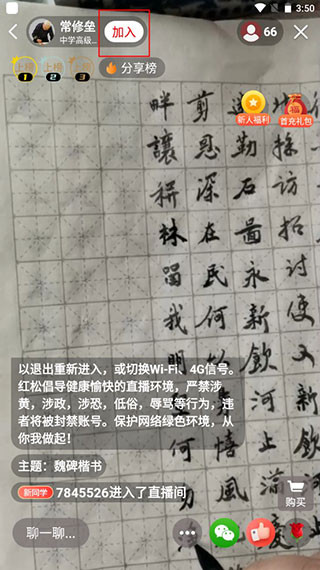 3:50
常修垒
中学高级...
加入
66
上榜 1 上榜 2 上榜 3
分享榜
新人福利
首充礼包
以退出重新进入，或切换Wi-Fi、4G信号。
红松倡导健康愉快的直播环境，严禁涉
黄，涉政，涉恐，低俗，辱骂等行为，违
者将被封禁账号。保护网络绿色环境，从
你我做起！
主题：魏碑楷书
新同学 7845526进入了直播间
购买
聊一聊...
剪恩深在民何
勤石面永新飲河止渴
採訪招討使
又新
畔讓耕
我明
何
悟風